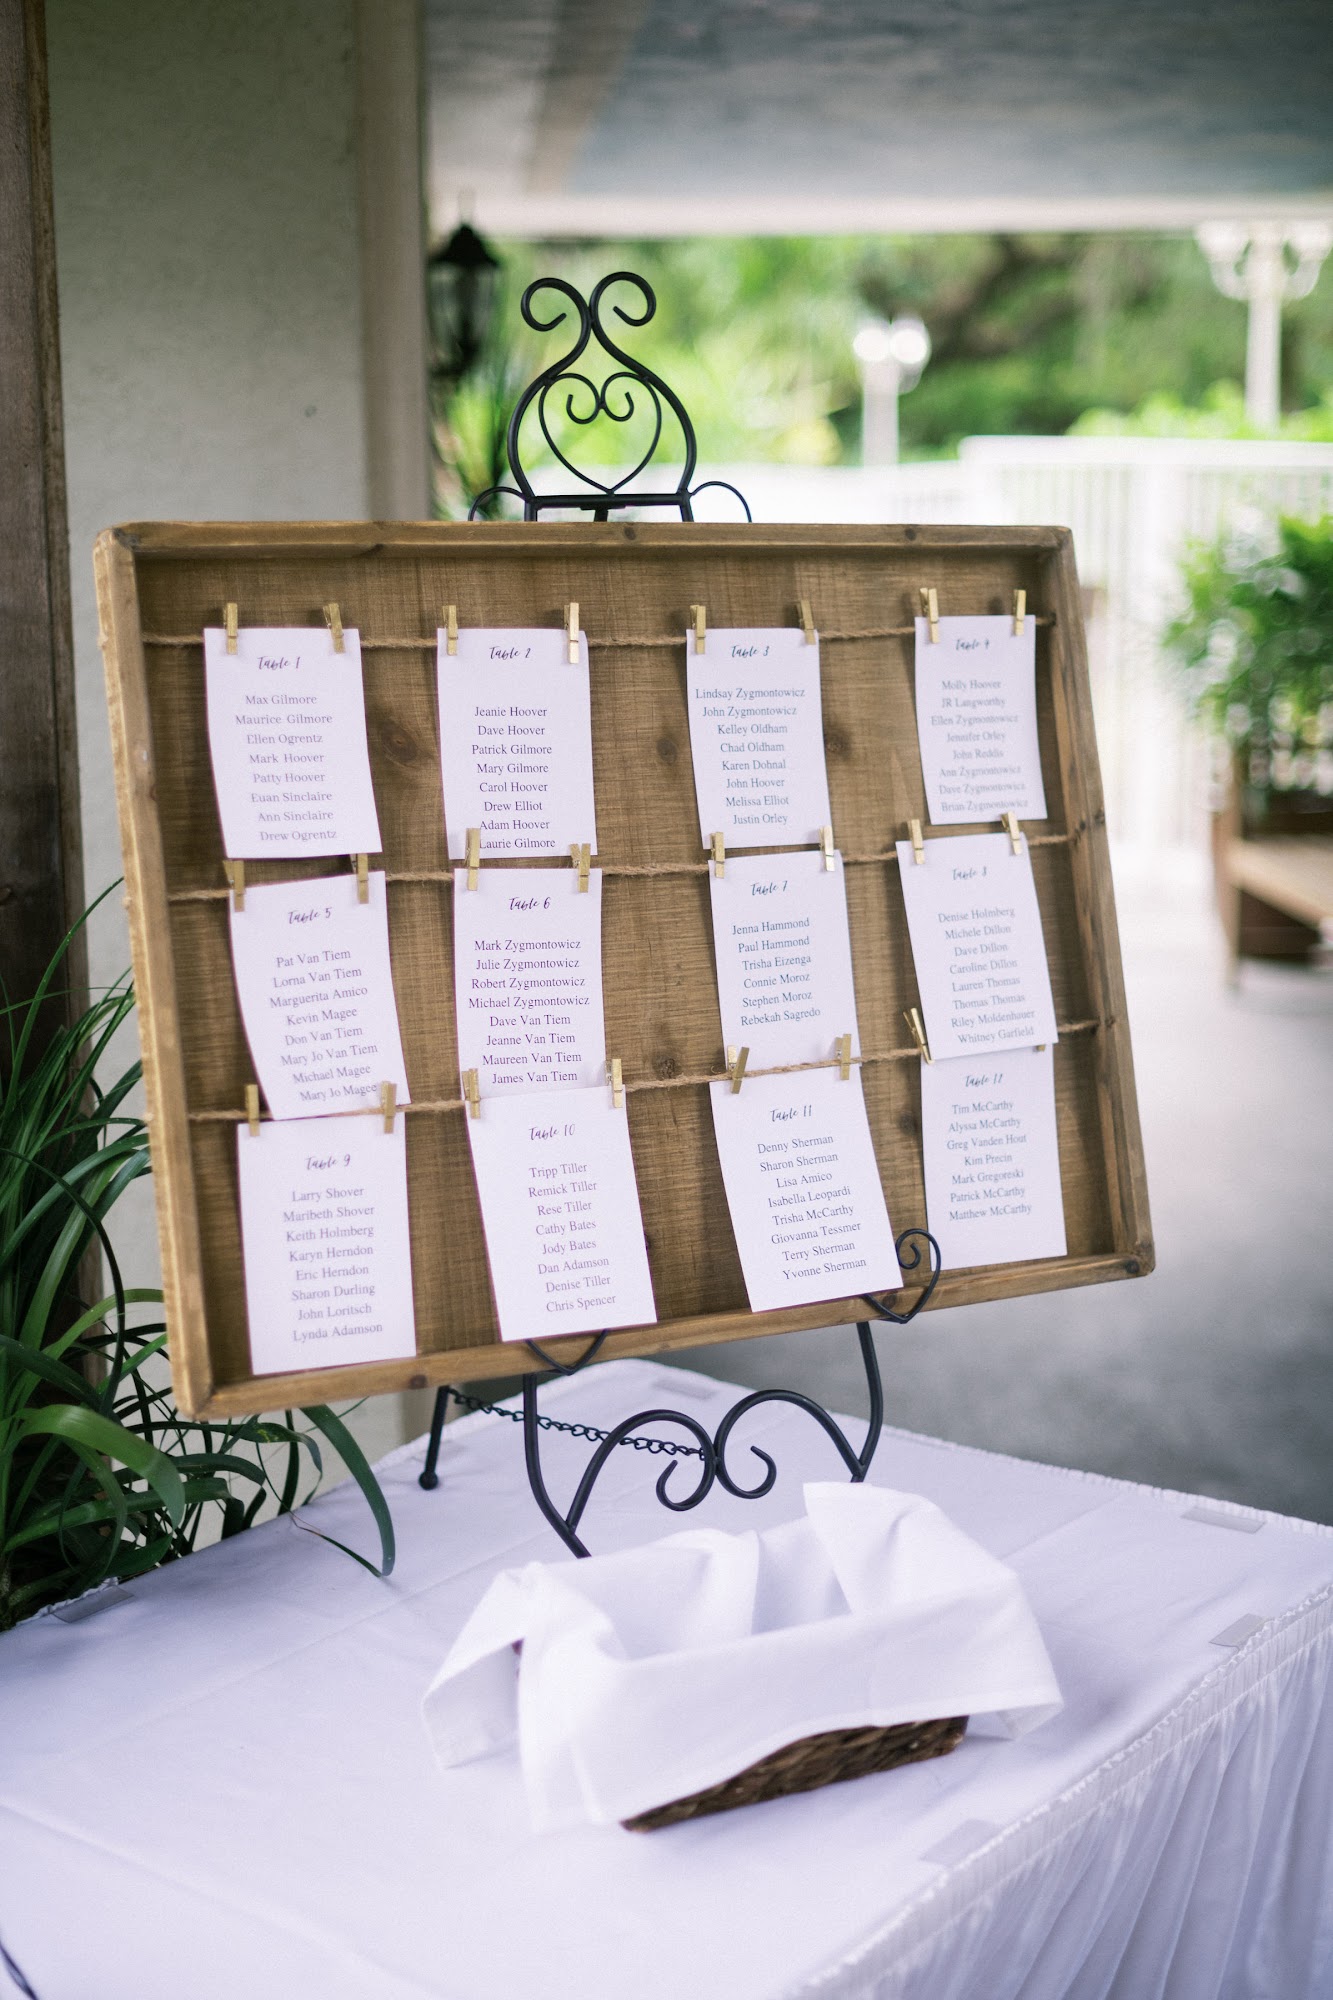 Table 1
Max Gilmore
Maurice Gilmore
Ellen Ogrentz
Mark Hoover
Patty Hoover
Euan Sinclaire
Ann Sinclaire
Drew Ogrentz
Table 2
Jeanie Hoover
Dave Hoover
Patrick Gilmore
Mary Gilmore
Carol Hoover
Drew Elliot
Adam Hoover
Laurie Gilmore
Table 3
Lindsay Zygmontowicz
John Zygmontowicz
Kelley Oldham
Chad Oldham
Karen Dohnal
John Hoover
Melissa Elliot
Justin Orley
Table 4
Molly Hoover
JR Langworthy
Ellen Zygmontowicz
Jennifer Orley
John Reddis
Ann Zygmontowicz
Dave Zygmontowicz
Brian Zygmontowicz
Table 5
Pat Van Tiem
Lorna Van Tiem
Marguerita Amico
Kevin Magee
Don Van Tiem
Mary Jo Van Tiem
Michael Magee
Mary Jo Magee
Table 6
Mark Zygmontowicz
Julie Zygmontowicz
Robert Zygmontowicz
Michael Zygmontowicz
Dave Van Tiem
Jeanne Van Tiem
Maureen Van Tiem
James Van Tiem
Table 7
Jenna Hammond
Paul Hammond
Trisha Eizenga
Connie Moroz
Stephen Moroz
Rebekah Sagredo
Table 8
Denise Holmberg
Michele Dillon
Dave Dillon
Caroline Dillon
Lauren Thomas
Thomas Thomas
Riley Moldenhauer
Whitney Garfield
Table 9
Larry Shover
Maribeth Shover
Keith Holmberg
Karyn Herndon
Eric Herndon
Sharon Durling
John Loritsch
Lynda Adamson
Table 10
Tripp Tiller
Remick Tiller
Rese Tiller
Cathy Bates
Jody Bates
Dan Adamson
Denise Tiller
Chris Spencer
Table 11
Denny Sherman
Sharon Sherman
Lisa Amico
Isabella Leopardi
Trisha McCarthy
Giovanna Tessmer
Terry Sherman
Yvonne Sherman
Table 12
Tim McCarthy
Alyssa McCarthy
Greg Vanden Hout
Kim Precin
Mark Gregoreski
Patrick McCarthy
Matthew McCarthy